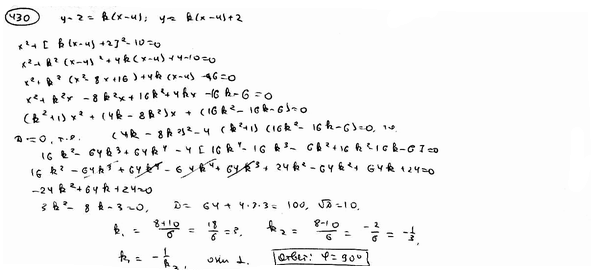 430 y-2 = k(x-4); y= k(x-4)+2
x²+ [ k(x-4)+2]²-10=0
x²+k² (x-4)²+4k(x-4)+4-10=0
x²+k² (x²-8x+16)+4k(x-4)-6=0
x²+k²x-8k²x+16k²+4kx-16k-6=0
(k²+1)x²+(4k-8k²)x+(16k²-16k-6)=0
D=0, т.е. (4k-8k²)²-4(k²+1)(16k²-16k-6)=0, т.е.
16k²-64k³+64k⁴-4[16k⁴-16k³-6k²+16k²-16k-6]=0
16k²-64k³+64k⁴-64k⁴+64k³+24k²-64k²+64k+24=0
-24k²+64k+24=0
3k²-8k-3=0, D= 64+4·9·3= 100, √D=10.
k₁ = 8+10/6 = 18/6 =3. k₂ = 8-10/6 = -2/6 = -1/3.
k₁ = -1/k₂, они ⊥. Ответ: φ=90°